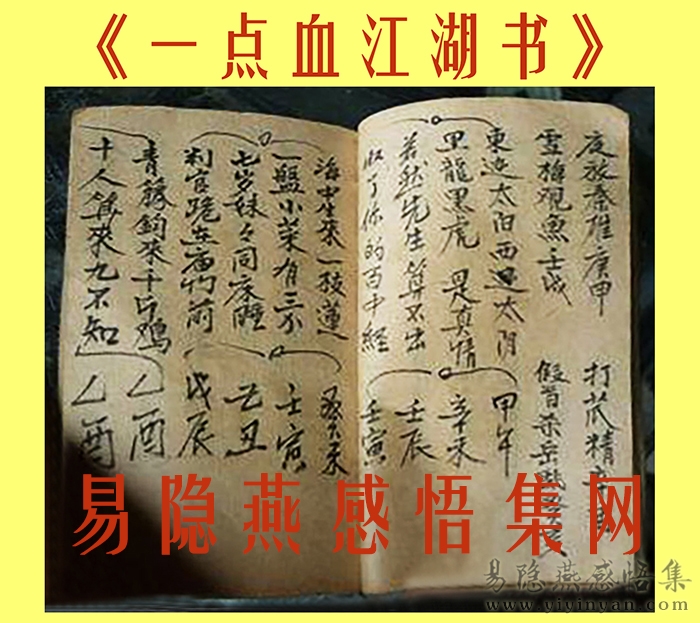 《一点血江湖书》
夜放秦雄庚申 打芪精
雪梅观鱼壬戌 假
東边太阳西边太阴 甲午
黑龍黑虎 是真情 辛未
若然先生算不出 壬辰
收了你的百中經 壬寅
海中生來一枝蓮 癸未
一盤小菜有三不 壬寅
七岁妹々同床睡 丑
判官跪在庙門前 戊辰
青籐鈎來千斤鸡 乙酉
十人算來九不知 乙酉
易隐燕感悟集网
易隐燕感悟集
www.yiyinyan.com